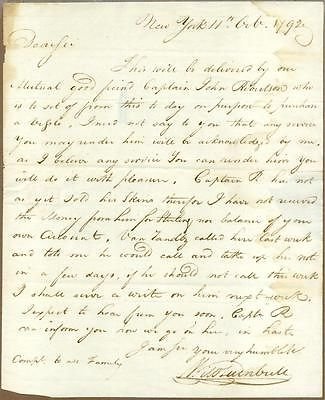 New York 11th Oct. 1792
Dear Sir
This will be delivered by our
Mutual good friend Captain John Richardson who
is to set of from this to day on purpose to purchase
a vessel. I need not say to you that any service
You may render him will be acknowledged by me,
as I believe any service You can render him you
will do it with pleasure. Captain R. has not
as yet sold his Skins therefor I have not received
the Money from him for Sterling nor balance of your
own Account. Van Zandt called here last week
and told me he would call and take up his note
in a few days, if he should not call this week
I shall serve a write on him next week.
I expect to hear from you soon. Captn R
can inform you how we go on here, in haste
I am Sir your very humble St
Compts. to all Family
Turnbull